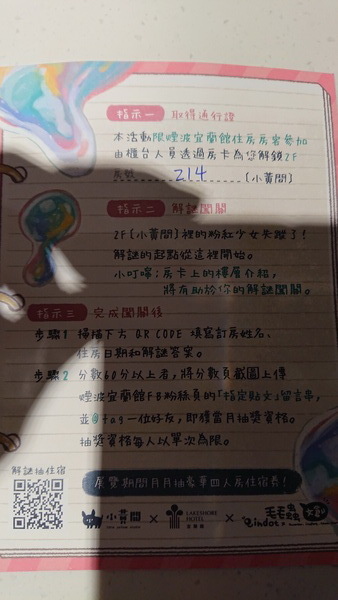 指示一 取得通行證
本活動限煙波宜蘭館住房房客參加
由櫃台人員透過房卡為您解鎖2F
房號 214 (小黃間)
指示二 解謎闖關
2F(小黃間)裡的粉紅少女失蹤了!
解謎的起點從這裡開始。
小叮嚀:房卡上的樓層介紹,
將有助於你的解謎闖關。
指示三 完成闖關後
步驟1 掃描下方 QR CODE 填寫訂房姓名、
住房日期和解謎答案。
步驟2 分數60分以上者,將分數頁截圖上傳
煙波宜蘭館FB粉絲頁的「指定貼文」留言串,
並@tag一位好友,即獲當月抽獎資格。
抽獎資格每人以單次為限。
解謎抽住宿
展覽期間月月抽豪華四人房住宿券!
小黃間 × LAKESHORE HOTEL × 毛毛蟲